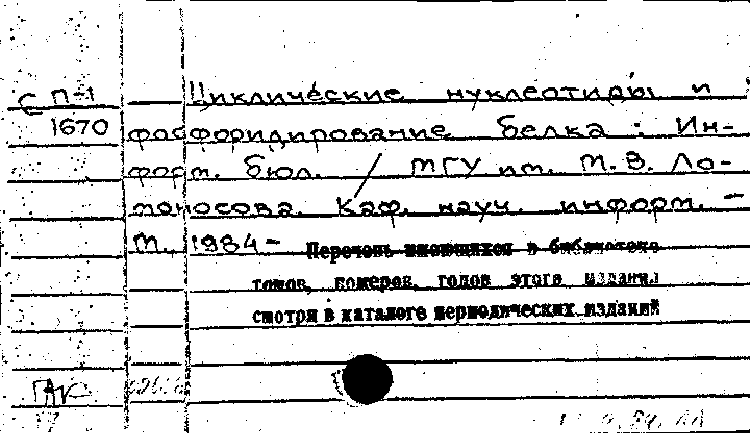 С П-1
1670
Циклические нуклеотиды и
фосфоридирование белка : Ин-
форм. бюл. / МГУ им. М.В. Ло-
моносова. Каф. науч. информ. –
М., 1984 –
Перечень имеющихся в библиотеке
томов, номеров, годов этого издания
смотри в каталоге периодических изданий